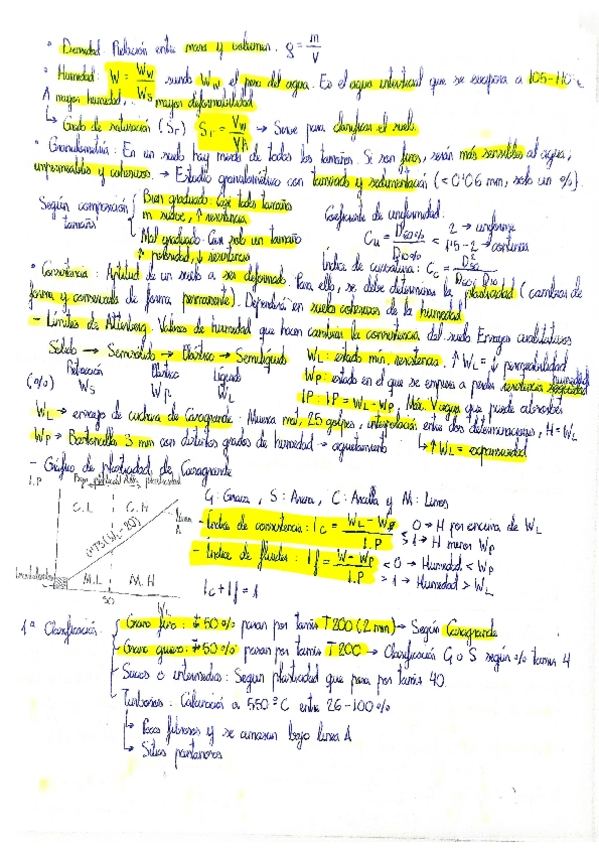 • Densidad. Relación entre masa y volumen. ρ = m/V
• Humedad. W = Ww/Ws siendo Ww el peso del agua. Es el agua intersticial que se evapora a 105-110ºC
A mayor humedad, mayor deformabilidad
↳ Grado de saturación (Sr) Sr = Vw/Vh → Sirve para clasificar el suelo.
• Granulometría: En un suelo hay mezcla de todos los tamaños. Si son finos, serán más sensibles al agua,
impermeables y cohesivos. → Estudio granulométrico con tamizado y sedimentación (< 0'06 mm, solo un %).
Según composición tamaños
Bien graduado. Casi todos tamaño
m suave, ↑ resistencia
Mal graduado. Casi solo un tamaño
↑ porosidad, ↓ resistencia
Coeficiente de uniformidad.
Cu = D60% / D10% < 2 → uniforme
< 1'5-2 → continua
Índice de curvatura: Cc = D²30 / D60 · D10
• Consistencia: Aptitud de un suelo a ser deformado. Para ello, se debe determinar la plasticidad (cambios de
forma y conservarlo de forma permanente). Dependerá en suelos cohesivos de la humedad.
- Límites de Atterberg. Valores de humedad que hacen cambiar la consistencia del suelo. Ensayos cualitativos
Sólido → Semisólido → Plástico → Semilíquido
Retracción Plástico Líquido
(%) Ws Wp WL
WL: estado mín. resistencia. ↑ WL = ↓ permeabilidad
Wp: estado en el que se empieza a perder humedad resistencia
I.P: I.P = WL - Wp. Máx. V agua que puede absorber
WL → ensayo de cuchara de Casagrande. Muestra mat, 25 golpes, interpolación entre dos determinaciones, H = WL
Wp → Bastoncillos 3 mm con distintos grados de humedad → agrietamiento
↳ ↑ WL = expansividad
- Gráfico de plasticidad de Casagrande
I.P
Baja plasticidad Alta plasticidad
C.L C.H
Línea A
IP=0'73(WL-20)
M.L M.H
50
WL
G: Grava, S: Arena, C: Arcilla y M: Limos
- Índice de consistencia: Ic = WL - W / I.P 0 → H por encima de WL
> 1 → H menor Wp
- Índice de fluidez: If = W - Wp / I.P < 0 → Humedad < Wp
> 1 → Humedad > WL
Ic + If = 1
1ª Clasificación.
Grano fino: 50% pasan por tamiz T200 (2 mm) → Según Casagrande
Grano grueso: 50% pasan por tamiz T200 → Clasificación G o S según % tamiz 4
Sucios o intermedios: Según plasticidad que pasa por tamiz 40.
Turbosos: Calcinación a 550ºC entre 26-100%
↳ Poco fibrosos y se amasan bajo línea A
↳ Sitios pantanosos